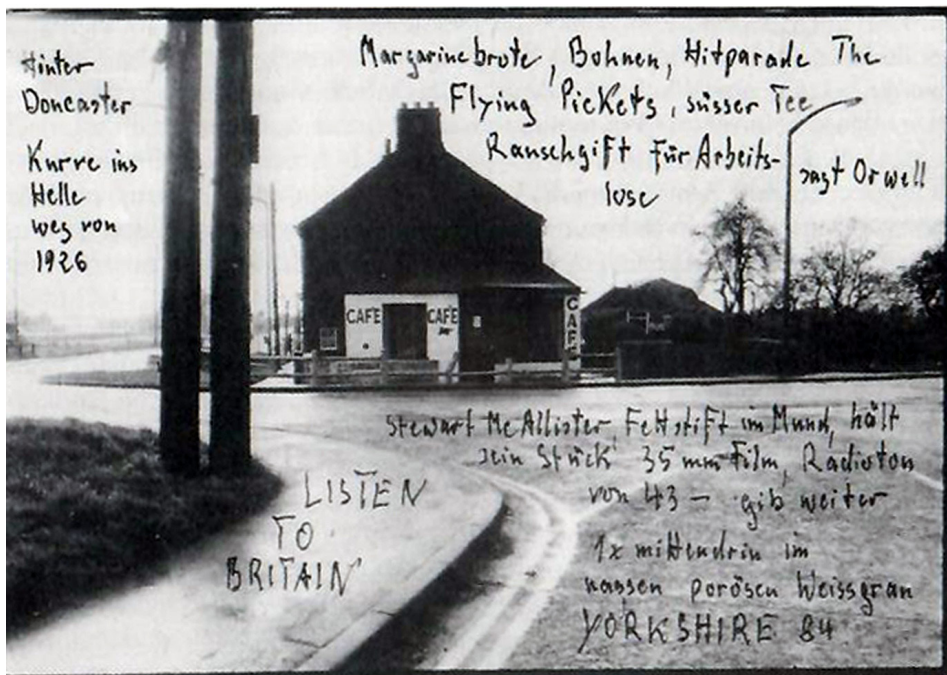 Hinter
Doncaster
Kurve ins
Helle
weg von
1926
Margarinebrote, Bohnen, Hitparade The
Flying Pickets, süsser Tee
Rauschgift für Arbeits-
lose
sagt Orwell
CAFE
CAFE
CAFE
Stewart McAllister, Fettstift im Mund, hält
sein Stück 35 mm Film, Radioton
von 43 – gib weiter
1x mittendrin im
nassen porösen Weissgrau
YORKSHIRE 84
LISTEN
TO
BRITAIN